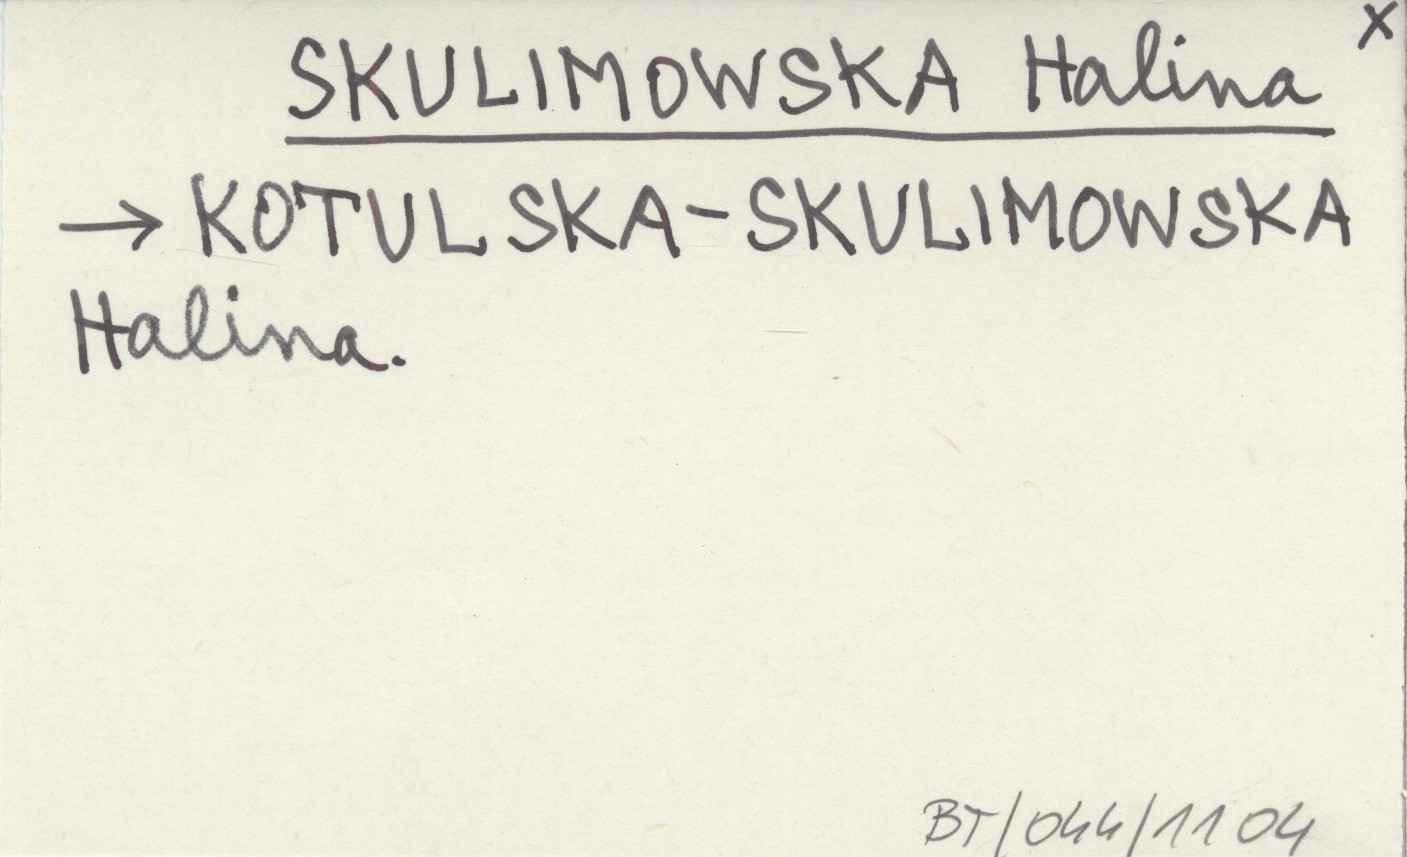 x
SKULIMOWSKA Halina
→ KOTULSKA-SKULIMOWSKA
Halina.
BT/044/1104